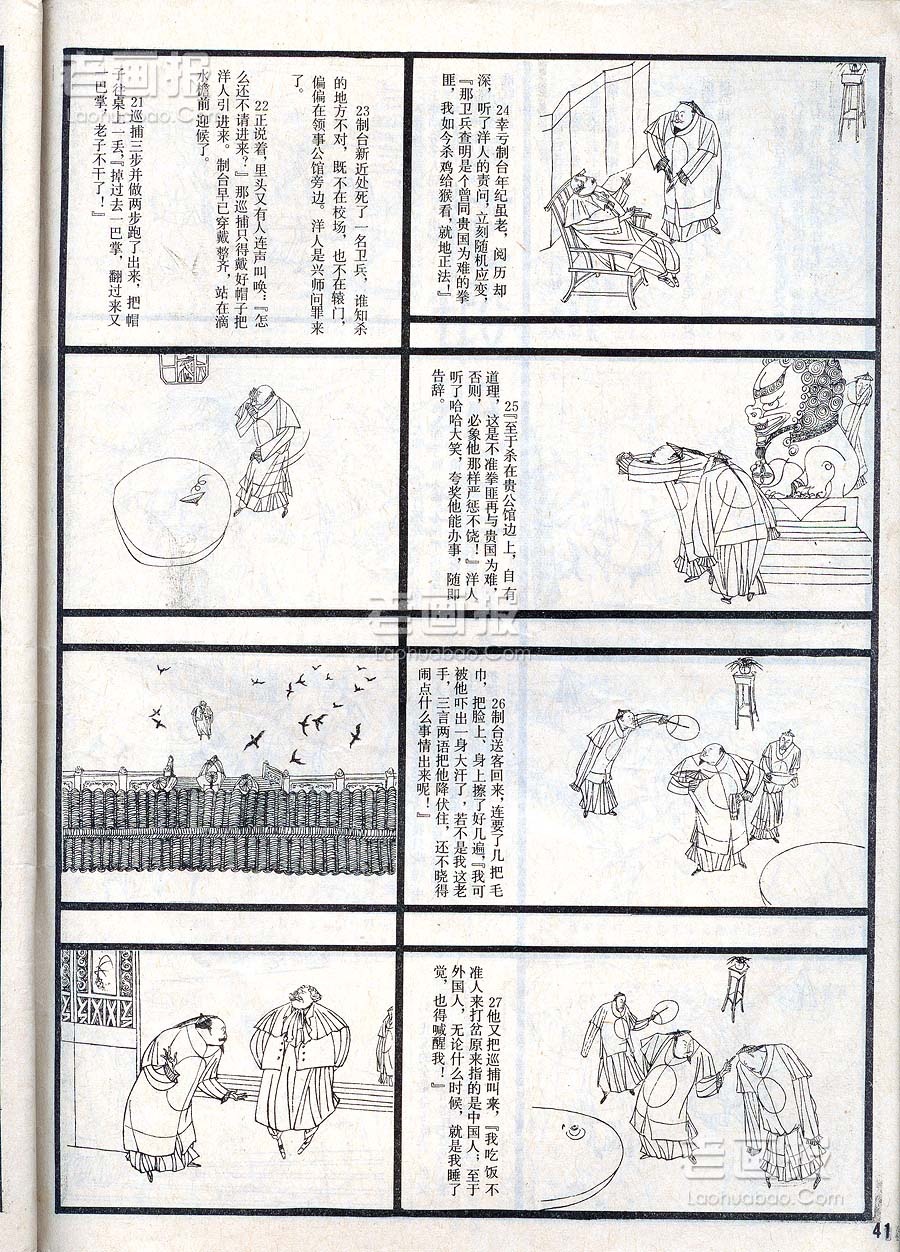 21巡捕三步并做两步跑了出来，把帽
子往桌上一丢，『掉过去一巴掌，翻过来又
一巴掌，老子不干了！』
22正说着，里头又有人连声叫唤：『怎
么还不请进来？』那巡捕只得戴好帽子把
洋人引进来。制台早已穿戴整齐，站在滴
水檐前迎候了。
23制台新近处死了一名卫兵，谁知杀
的地方不对，既不在校场，也不在辕门，
偏偏在领事公馆旁边，洋人是兴师问罪来
了。
24幸亏制台年纪虽老，阅历却
深，听了洋人的责问，立刻随机应变，
『那卫兵查明是个曾同贵国为难的拳
匪，我如今杀鸡给猴看，就地正法；』
25『至于杀在贵公馆边上，自有
道理，这是不准拳匪再与贵国为难，
否则，必象他那样严惩不饶！』洋人
听了哈哈大笑，夸奖他能办事，随即
告辞。
26制台送客回来，连要了几把毛
巾，把脸上、身上擦了好几遍，『我可
被他吓出一身大汗了，若不是我这老
手，三言两语把他降伏住，还不晓得
闹点什么事情出来呢！』
27他又把巡捕叫来，『我吃饭不
准人来打岔原来指的是中国人；至于
外国人，无论什么时候，就是我睡了
觉，也得喊醒我！』
41
老画报
老画报
Laohuabao.Com
老画报
Laohuabao.Com